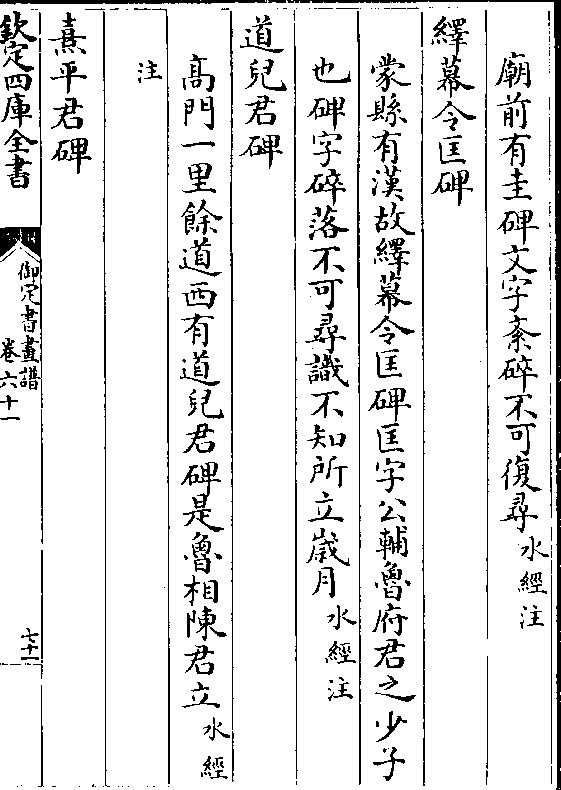 廟前有圭碑文字紊碎不可復尋水經注
繹幕令匡碑
蒙縣有漢故繹幕令匡碑匡字公輔魯府君之少子
也碑字碎落不可尋識不知所立歲月水經注
道兒君碑
高門一里餘道西有道兒君碑是魯相陳君立水經
注
熹平君碑
欽定四庫全書
御定書畫譜
卷六十一
七十一